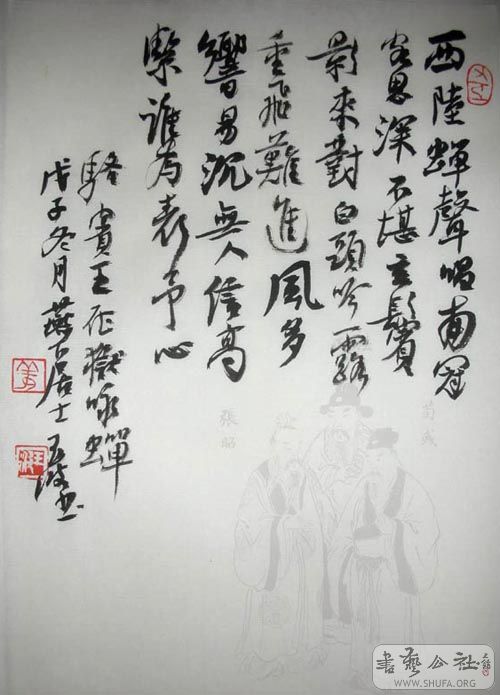 西陸蟬聲唱南冠
客思深不堪玄鬢
影來對白頭吟露
重飛難進風多
響易沉無人信高
絜誰為表予心
駱賓王在獄咏蟬
戊子冬月燕下居士王波書
荀彧
張昭
書藝公社
WWW.SHUFA.ORG